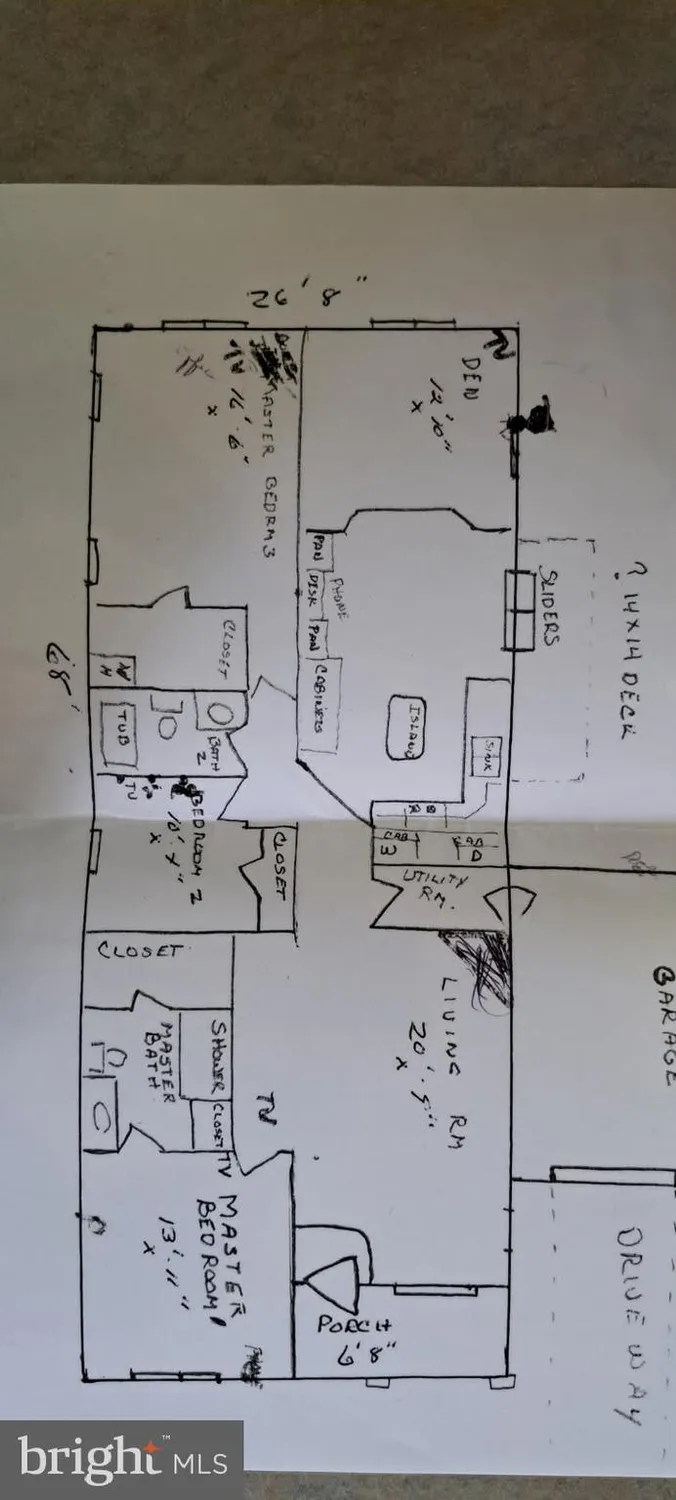 26' 8"
TV
DEN
12' 10"
x
TV
MASTER BEDRM 3
16'. 6"
x
? 14X14 DECK
SLIDERS
PAN
DISK
PHONE
PAN
CABINETS
ISLAND
SINK
CLOSET
68'
TUB
BATH
2
TV
BEDROOM 2
x
CLOSET
CAB
3
CAB
UTILITY
RM.
CLOSET
GARAGE
LIVING RM
x
SHOWER
MASTER
BATH
CLOSET
TV
TV
MASTER
BEDROOM 1
13'. 11"
x
PORCH
6' 8"
DRIVEWAY
bright MLS